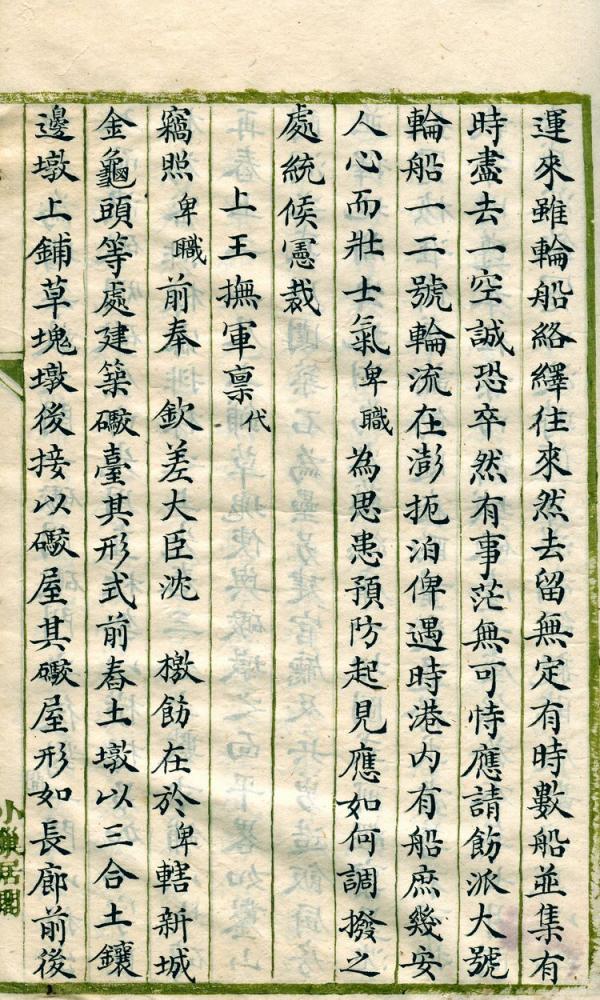 運來雖輪船絡繹往來然去留無定有時數船並集有
時盡去一空誠恐卒然有事茫無可恃應請飭派大號
輪船一二號輪流在澎扼泊俾遇時港內有船庶幾安
人心而壯士氣卑職為思患預防起見應如何調撥之
處統候憲裁
上王撫軍稟代
竊照卑職前奉 欽差大臣沈 檄飭在於卑轄新城
金龜頭等處建築礮臺其形式前舂土墩以三合土鑲
邊墩上鋪草塊墩後接以礮屋其礮屋形如長廊前後
小巢居閣